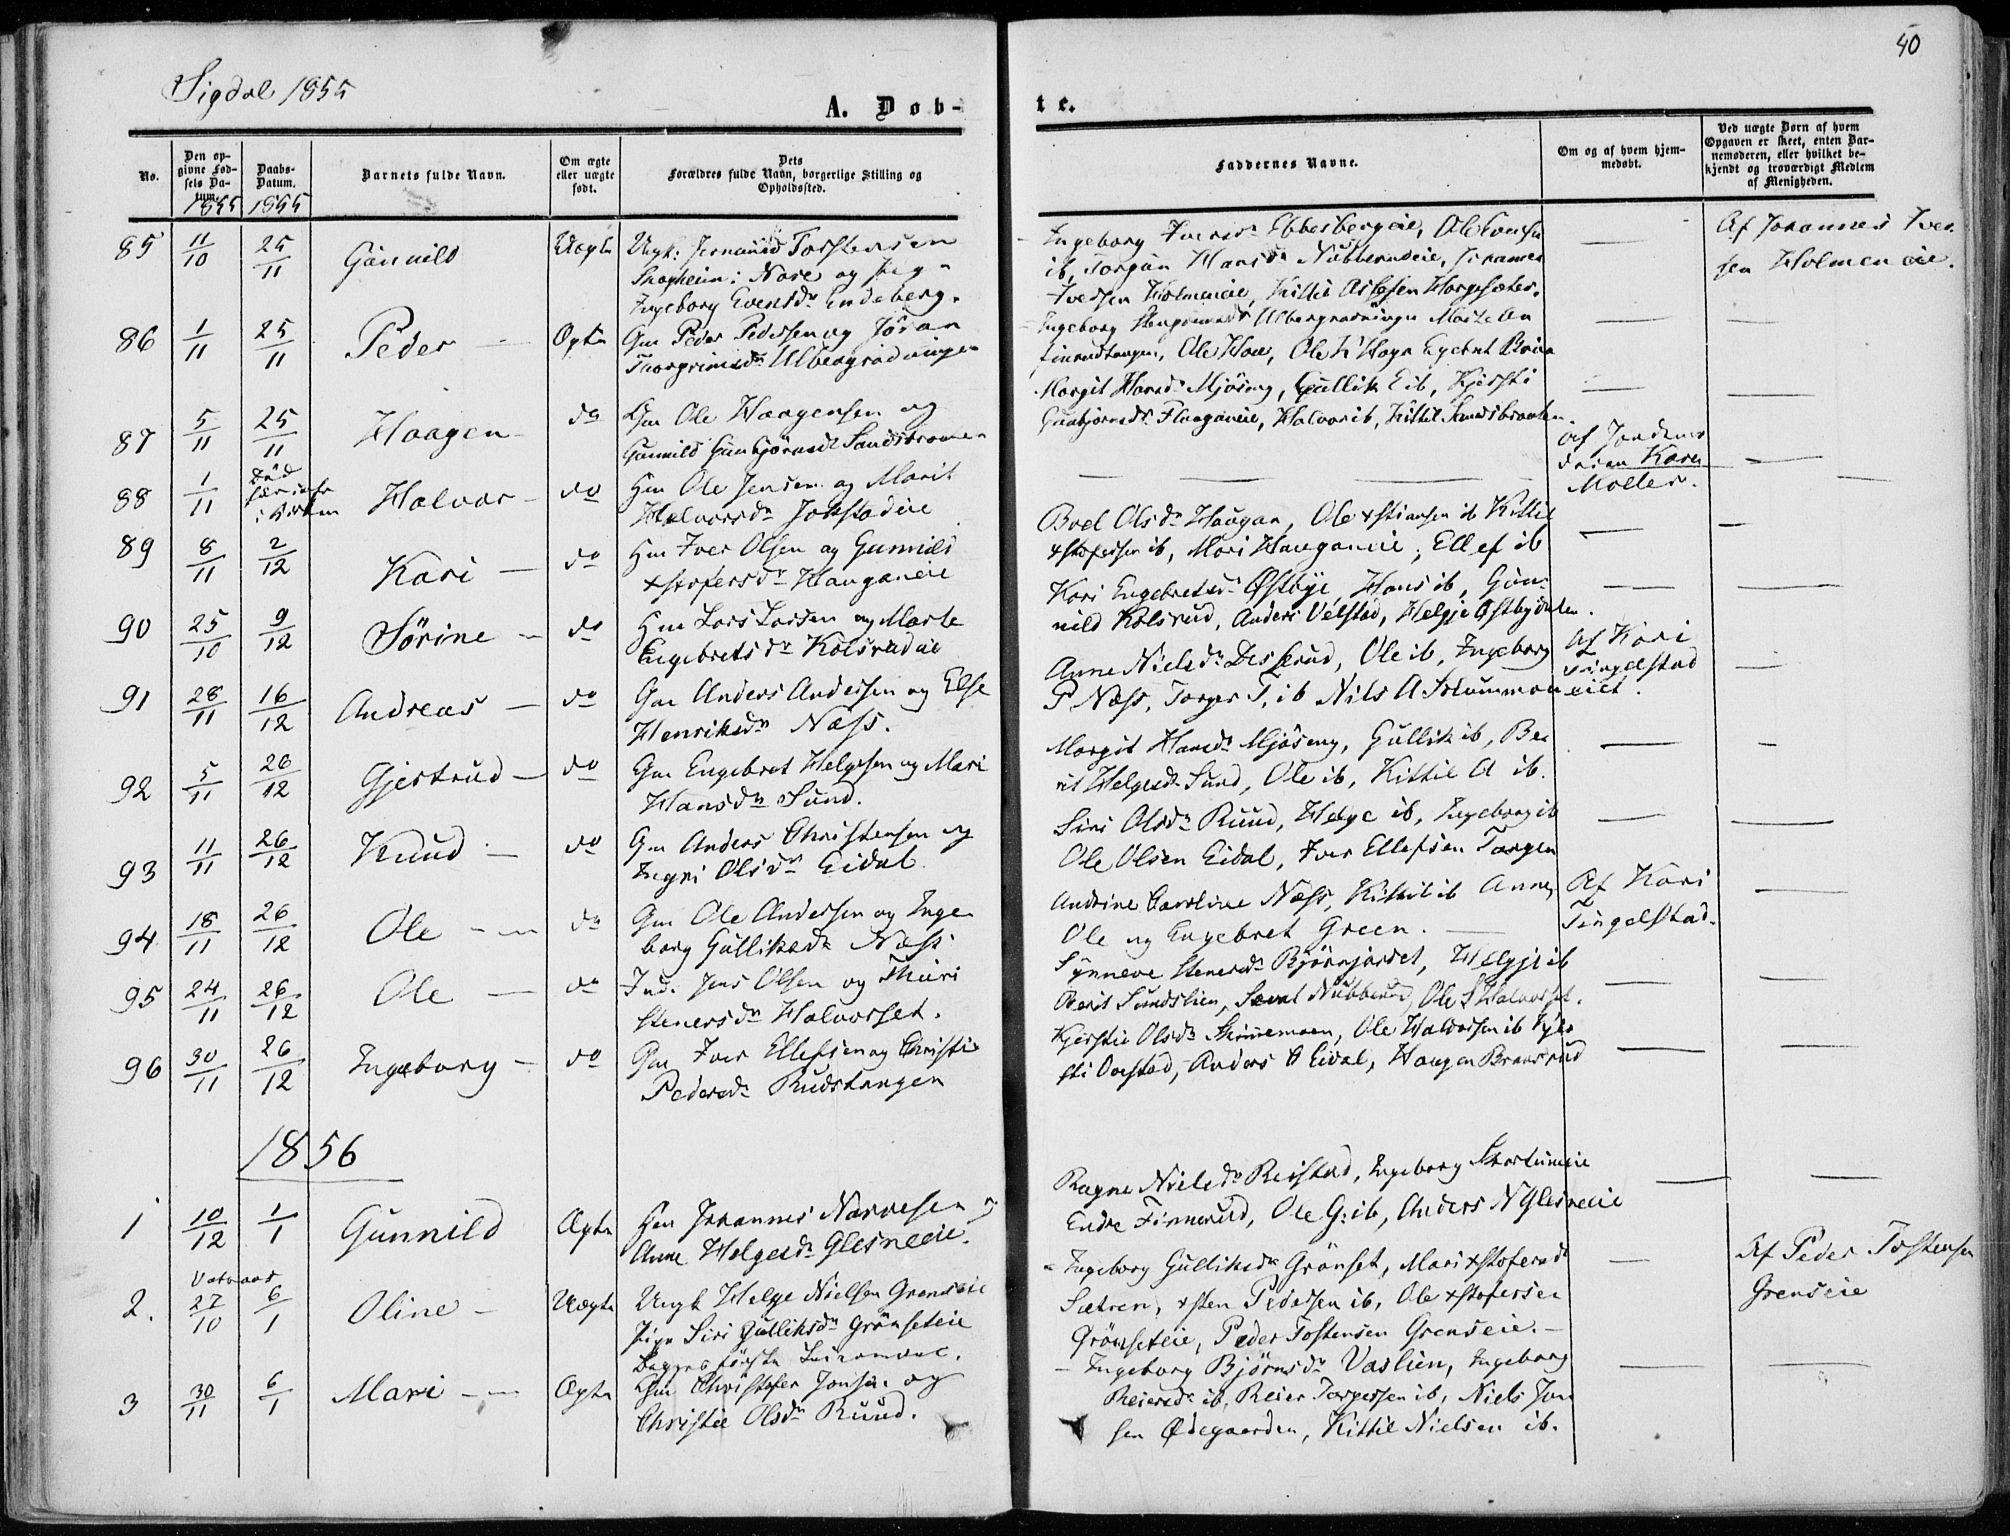 40
Sigdal 1855
A. Døb-
te.
No.
Den op-
givne Fød-
sels Da-
tum.
1855
Daabs-
Datum.
1855
Barnets fulde Navn.
Om ægte
eller uægte
født.
Dets
Forældres fulde Navn, borgerlige Stilling og
Opholdssted.
Faddernes Navne.
Om og af hvem hjem-
medøbt.
Ved uægte Børn af hvem
Opgaven er skeet, enten Bar-
nemoderen, eller hvilket be-
kjendt og troværdigt Medlem
af Menigheden.
85 11/10 25/11 Gunnild Uægte Ungk: Torstensen
i Nore og Pig-
Ingeborg Evensdr Endeberg.
Ingeborg Iversdr Ebbesbergeie, Ole
ib, Torgun Hansdr Nubberudeie, Johannes
Iversen Holmeneie, Kittil
Af Johannes Iver-
sen Holmeneie.
86 1/11 25/11 Peder — Ægte Gm Peder Pedersen og Jöran
Thorgrimsdr Ulbergrødningen
Ingeborg Ulbergrødningen
Ole Hove, Ole
87 5/11 25/11 Haagen do Hm Ole Haagensen og
Gunnild Gunbjörnsdr
Margit Hansdr Mjöseng, Gullik E ib, Kjersti
Gunbjørnsdr Haaganeie, Halvor ib, Kittil
88 1/11 Död Halvor — do Hm Ole Jensen og Marit
Halvorsdr Jokstadeie
Af Jordemo-
deren Karen
Møller.
89 8/11 2/12 Kari — do Hm Iver Olsen og Gunnild
Xstofersdr Haaganeie
Boel Olsdr Haugan, Ole Xstiansen ib Kittil
Xstofersen ib, Mari Hauganeie, Ellef ib
90 25/10 9/12 Sörine — do Hm Lars Larsen og Marte
Engebretsdr Kolsrudeie
Kari Engebretsdr Østbye, Hans ib, Gun-
nild Kolsrud, Anders Velstad, Helgje
91 28/11 16/12 Andreas — do Gm Anders Andersen og Else
Henriksdr Næss.
Anne Nielsdr Desserud, Ole ib, Ingeborg
P Næss, Torger T. ib Nils A
Af Kari
Tingelstad
92 5/11 26/12 Gjertrud — do Gm Engebret Helgesen og Mari
Hansdr Sund.
Margit Hansdr Mjöseng, Gullik ib, Be-
rit Helgesdr Sund, Ole ib, Kittil A ib.
93 11/11 26/12 Knud — do Gm Anders Christensen og
Ingri Olsdr Eidal.
Siri Olsdr Ruud, Helge ib, Ingeborg ib
Ole Olsen Eidal, Iver Ellefsen Tangen
94 18/11 26/12 Ole do Gm Ole Andersen og Inge-
borg Gulliksdr Næss
Andrine Caroline Næss, Kittil ib Anne,
Ole og Engebret Green.
Af Kari
Tingelstad.
95 24/11 26/12 Ole — do Ind. Jens Olsen og Thuri
Stenersdr Halvorset.
Synneve Stenersdr Björnjordet, Helgje ib
Berit Sundslien, Nubberud, Ole S Halvorset.
96 30/11 26/12 Ingeborg — do Gm Iver Ellefsen og Christie
Pedersdr Rudstangen
Kjerstie Olsdr Ole Halvorsen ib Kjer-
sti Anders C Eidal, Haagen
1856
1 10/12 1/1 Gunnild Ægte Hm Johannes Narvesen og
Anne Helgesdr Glesneeie.
Ragne Nielsdr Reistad, Ingeborg
Endre Finnerud, Ole G: ib, Anders N Glesneeie
2. 27/10 6/1 Oline — Uægte Ungk Helge Nielsen Grenseie
Pige Siri Gulliksdr Grönseteie
Begges første Leiermaal.
Ingeborg Gulliksdr Grönset, Mari Xstofersdr
Sætren, Xsten Pedersen ib, Ole Xstofersen
Grönseteie, Peder Tostensen Grenseie.
Af Peder Tostensen
Grenseie
3 30/11 6/1 Mari — Ægte Gm Christofer Jonsen og
Christie Olsdr Ruud.
Ingeborg Björnsdr Vaslien, Ingeborg
Reiersdr ib, Reier Torgersen ib, Niels Jon-
sen Ødegaarden, Kittil Nielsen ib.